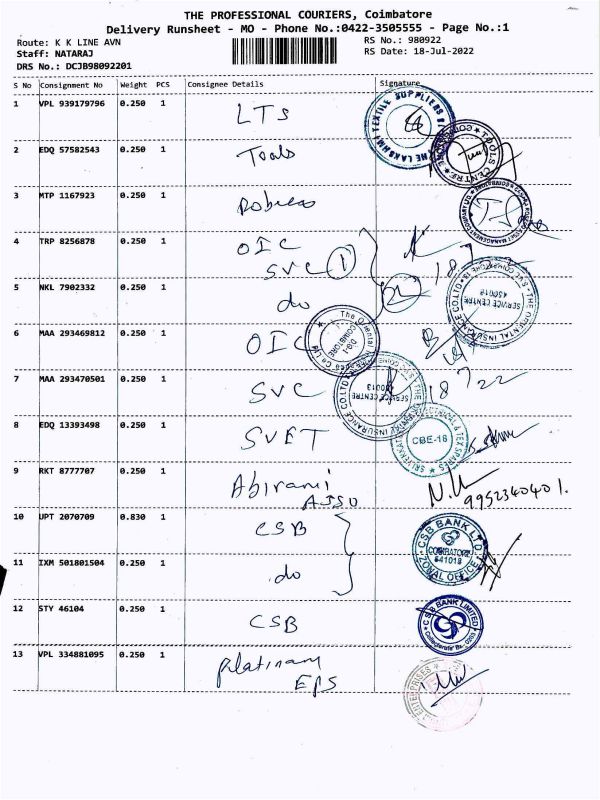 THE PROFESSIONAL COURIERS, Coimbatore
Delivery Runsheet - MO - Phone No.:0422-3505555 - Page No.:1
Route: K K LINE AVN
RS No.: 980922
Staff: NATARAJ
RS Date: 18-Jul-2022
DRS No.: DCJB98092201
S No Consignment No Weight PCS Consignee Details Signature
1 VPL 939179796 0.250 1 LTS
THE LAKSHMI TEXTILE SUPPLIERS
2 EDQ 57582543 0.250 1 Tools
TOOLS CENTRE
3 MTP 1167923 0.250 1
4 TRP 8256878 0.250 1 OIC
SVC 1
5 NKL 7902332 0.250 1 do
THE ORIENTAL INSURANCE CO.LTD
SERVICE CENTRE
450018
6 MAA 293469812 0.250 1 OIC
The Oriental Insurance Co Ltd
7 MAA 293470501 0.250 1 SVC
INSURANCE CO.LTD
SERVICE CENTRE
18722
8 EDQ 13393498 0.250 1 SVET
CBE-18
9 RKT 8777707 0.250 1 Abirami
ASSO
9952340401.
10 UPT 2070709 0.830 1 CSB
CSB BANK LTD.
COIMBATORE
641018
ZONAL OFFICE
11 IXM 501801504 0.250 1 do
12 STY 46104 0.250 1 CSB
CSB BANK LIMITED
13 VPL 334881095 0.250 1 platinam
EPS
ENTERPRISES